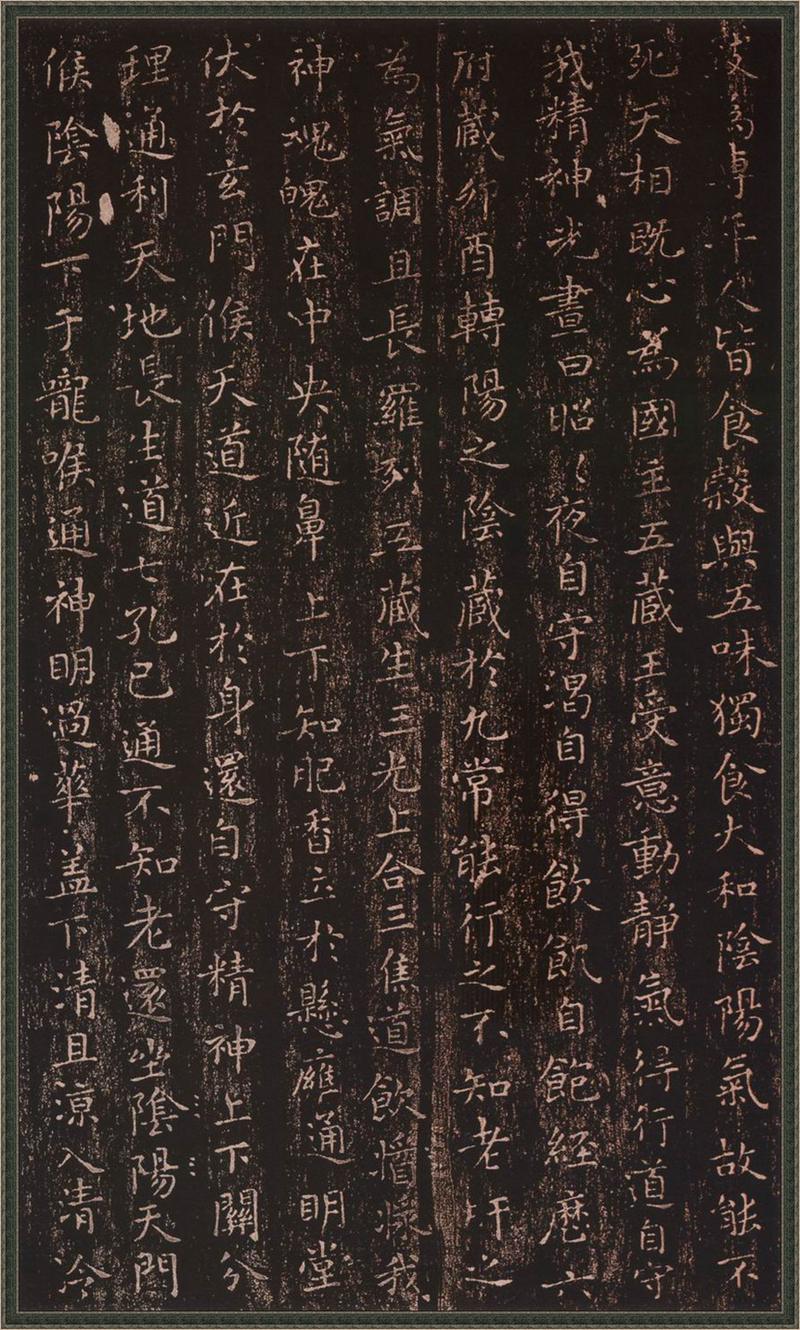 為專年人皆食穀與五味獨食大和陰陽氣故能不
死天相既心為國主五藏王受意動靜氣得行道自守
我精神光晝日昭〻夜自守渴自得飲飢自飽經歷六
府藏卯酉轉陽之陰藏於九常能行之不知老肝之
為氣調且長羅列五藏生三光上合三焦道飲漿我
神魂魄在中央随鼻上下知肥香立於懸雍通明堂
伏於玄門候天道近在於身還自守精神上下關分
理通利天地長生道七孔已通不知老還坐陰陽天門
候陰陽下于嚨喉通神明過華蓋下清且涼入清冷